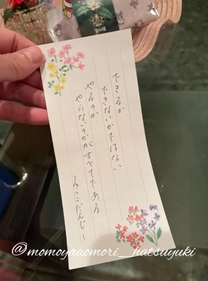 できるか
できないかではない
やるか
やらないかがすべてである
@momoyaaomori__hatsuyuki